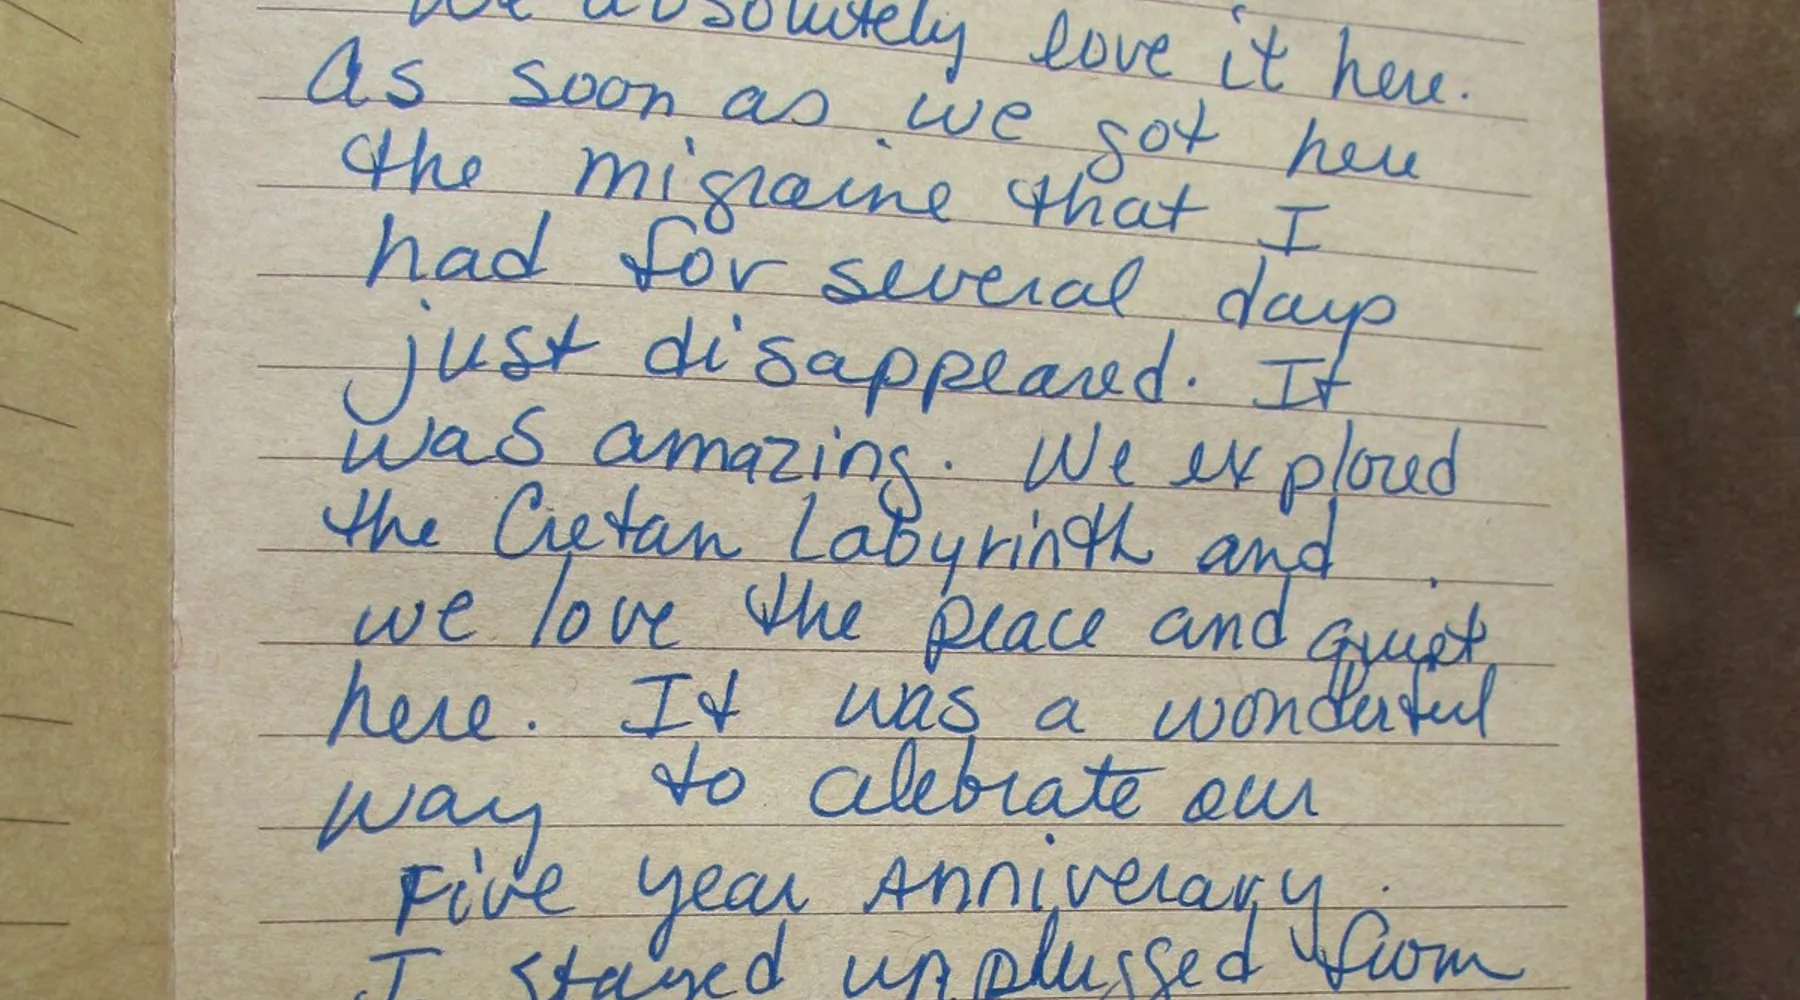 We absolutely love it here.
As soon as we got here
the migraine that I
had for several days
just disappeared. It
was amazing. We explored
the Cretan Labyrinth and
we love the peace and quiet
here. It was a wonderful
way to celebrate our
Five year Anniverary.
I stayed unplugged from